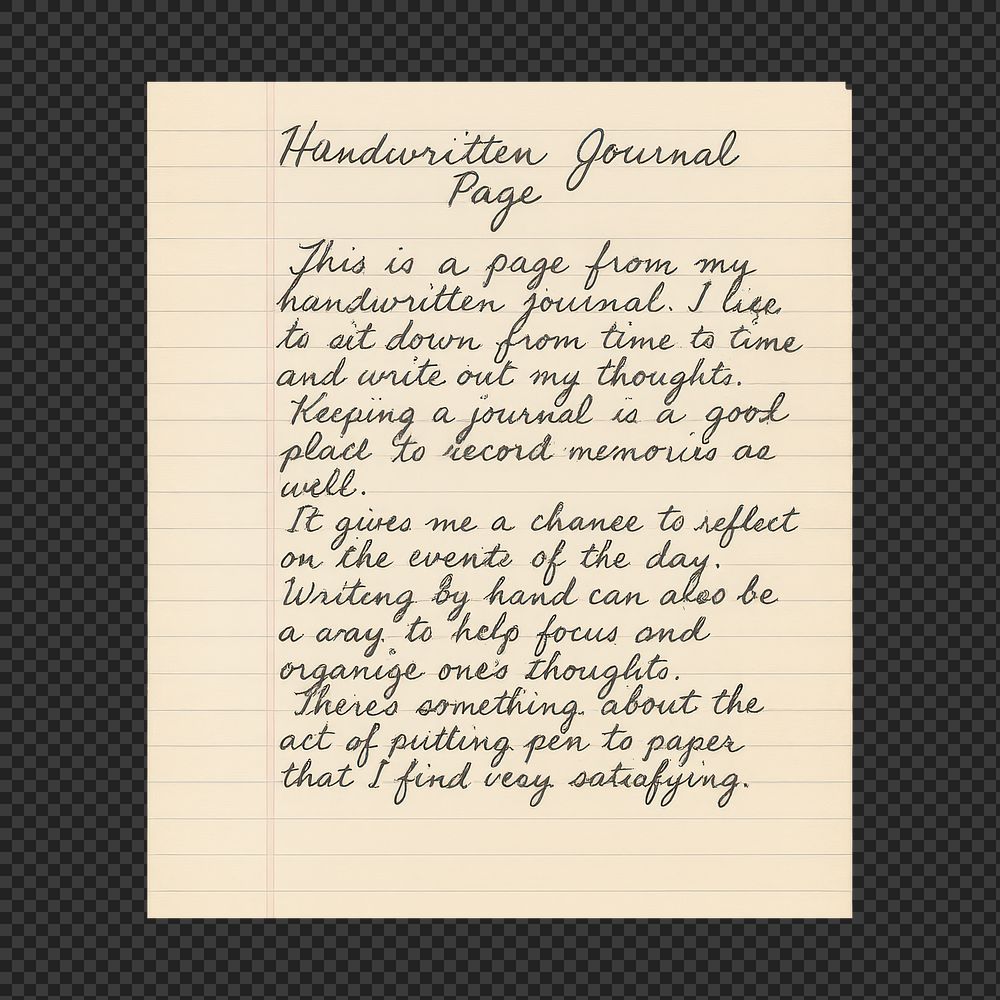 Handwritten Journal
Page
This is a page from my
handwritten journal. I
to sit down from time to time
and write out my thoughts.
Keeping a journal is a good
place to record memories as
well.
It gives me a chance to reflect
on the events of the day.
Writing by hand can also be
a way to help focus and
organize one's thoughts.
Theres something about the
act of putting pen to paper
that I find very satisfying.